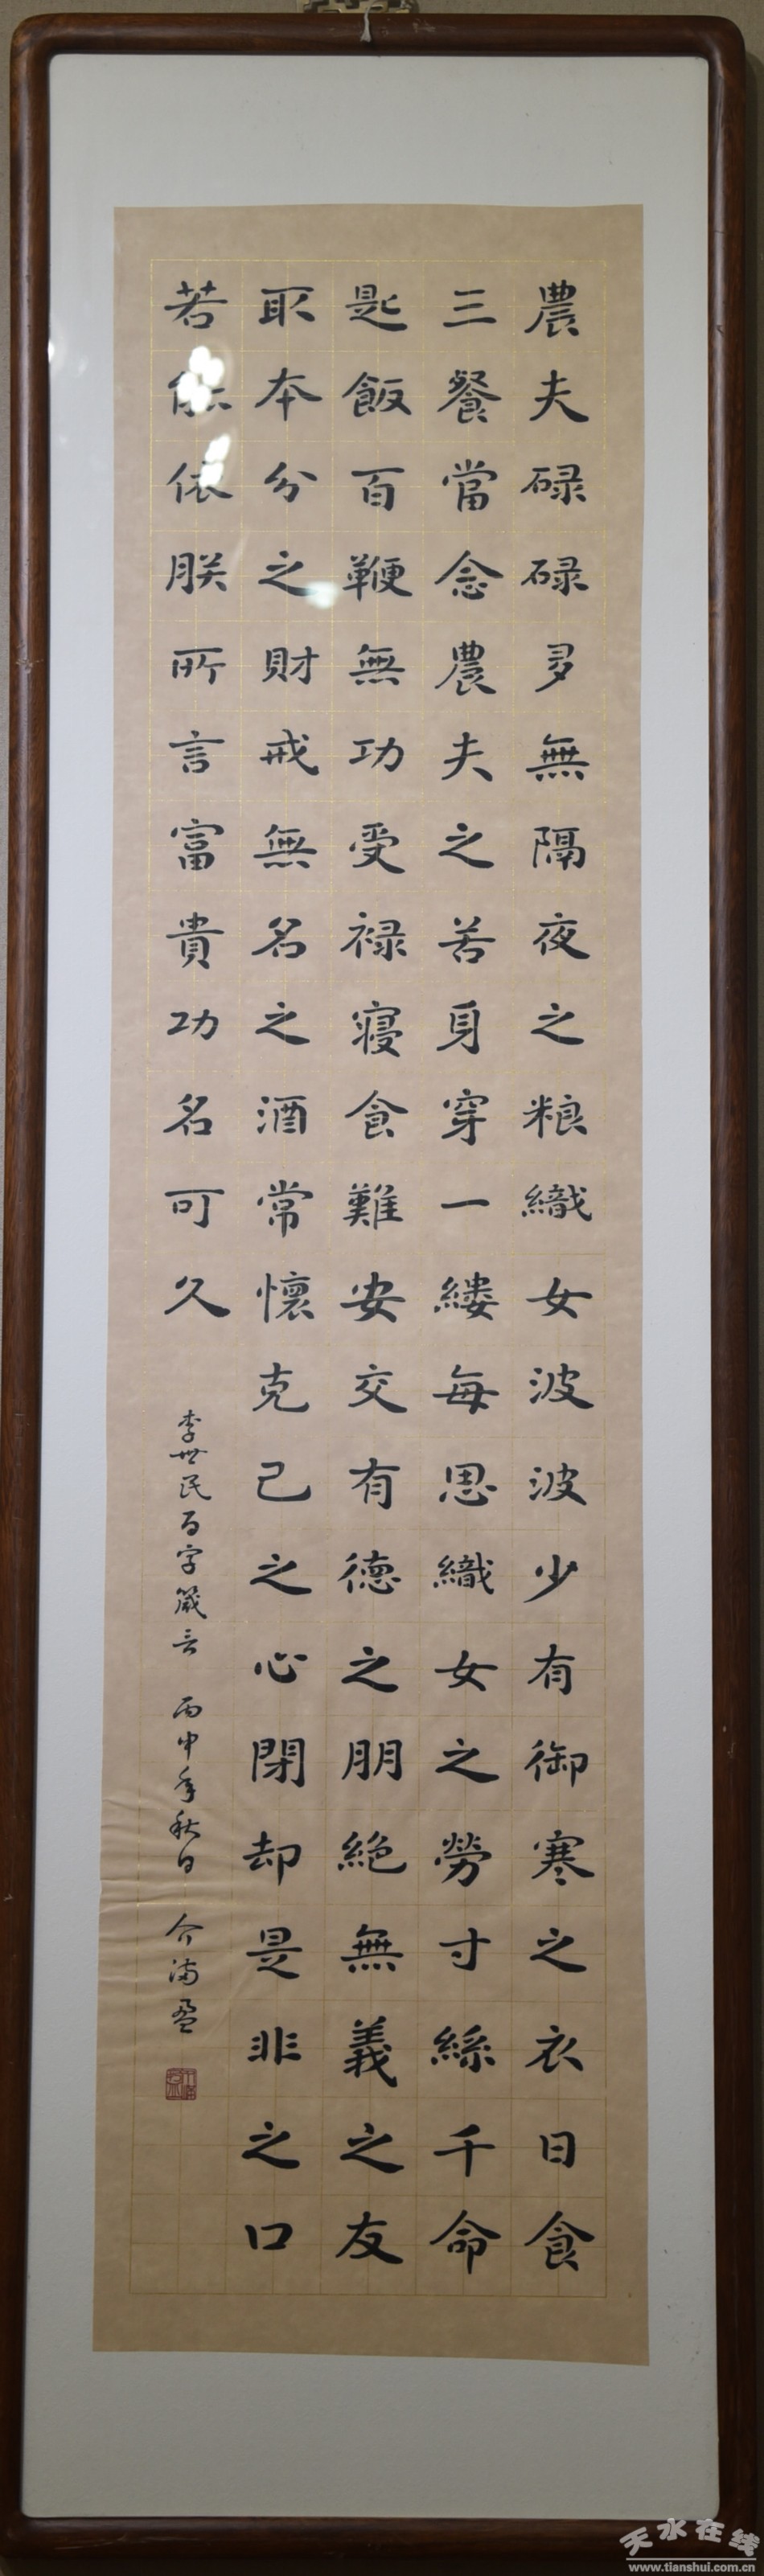 農夫碌碌多無隔夜之粮織女波波少有御寒之衣日食
三餐當念農夫之苦身穿一縷每思織女之勞寸絲千命
匙飯百鞭無功受禄寝食難安交有德之朋絶無義之友
取本分之財戒無名之酒常懷克己之心閉却是非之口
若能依朕所言富貴功名可久
李世民百字箴言 丙申年秋日 介満盈
天水在线
www.tianshui.com.cn